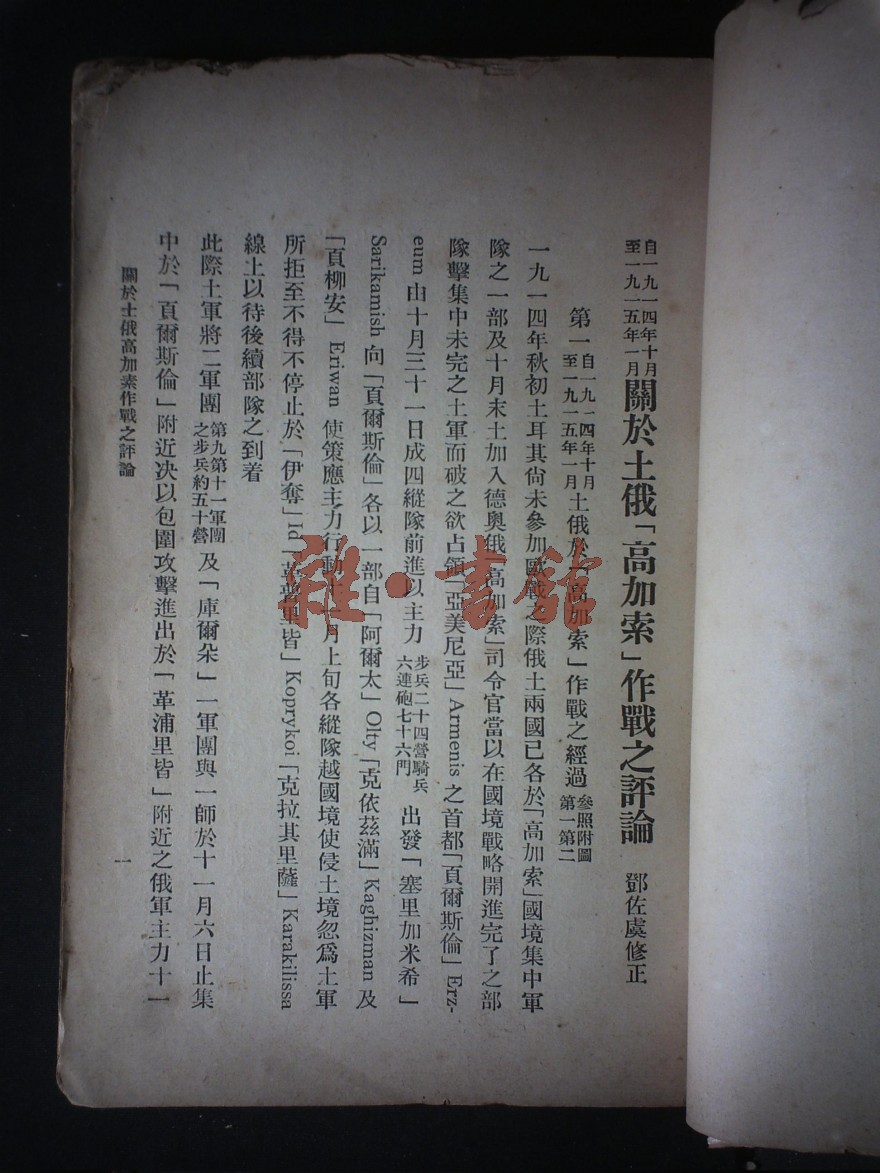 自一九一四年十月至一九一五年一月關於土俄「高加索」作戰之評論 鄧佐虞修正
第一 自一九一四年十月至一九一五年一月 土俄於「高加索」作戰之經過 參照附圖第一第二
一九一四年秋初土耳其尙未參加歐戰之際俄土兩國已各於「高加索」國境集中軍
隊之一部及十月末土加入德奧俄「高加索」司令官當以在國境戰略開進完了之部
隊擊集中未完之土軍而破之欲占領「亞美尼亞」Armenis 之首都「頁爾斯倫」Erz-
eum 由十月三十一日成四縱隊前進以主力 步兵二十四營騎兵六連砲七十六門 出發「塞里加米希」
Sarikamish 向「頁爾斯倫」各以一部自「阿爾太」Olty「克依茲滿」Kaghizman 及
「頁柳安」Eriwan 使策應主力行動十一月上旬各縱隊越國境使侵土境忽爲土軍
所拒至不得不停止於「伊奪」Id「革普里皆」Koprykoi「克拉其里薩」Karakilissa
線上以待後續部隊之到着
此際土軍將二軍團 第九第十一軍團之步兵約五十營 及「庫爾朵」一軍團與一師於十一月六日止集
中於「頁爾斯倫」附近決以包圍攻擊進出於「革浦里皆」附近之俄軍主力十一
關於土俄高加素作戰之評論
一
雜·書館